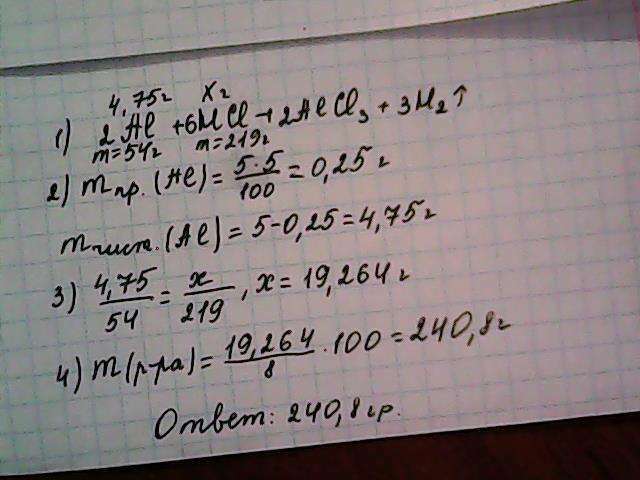 4,75г Xг
1) 2Al + 6HCl → 2AlCl₃ + 3H₂↑
m=54г m=219г
2) m пр. (Al) = 5·5/100 = 0,25 г
m чист. (Al) = 5-0,25 = 4,75 г
3) 4,75/54 = x/219, x = 19,264 г
4) m (р-ра) = 19,264/8 · 100 = 240,8 г
Ответ: 240,8 гр.